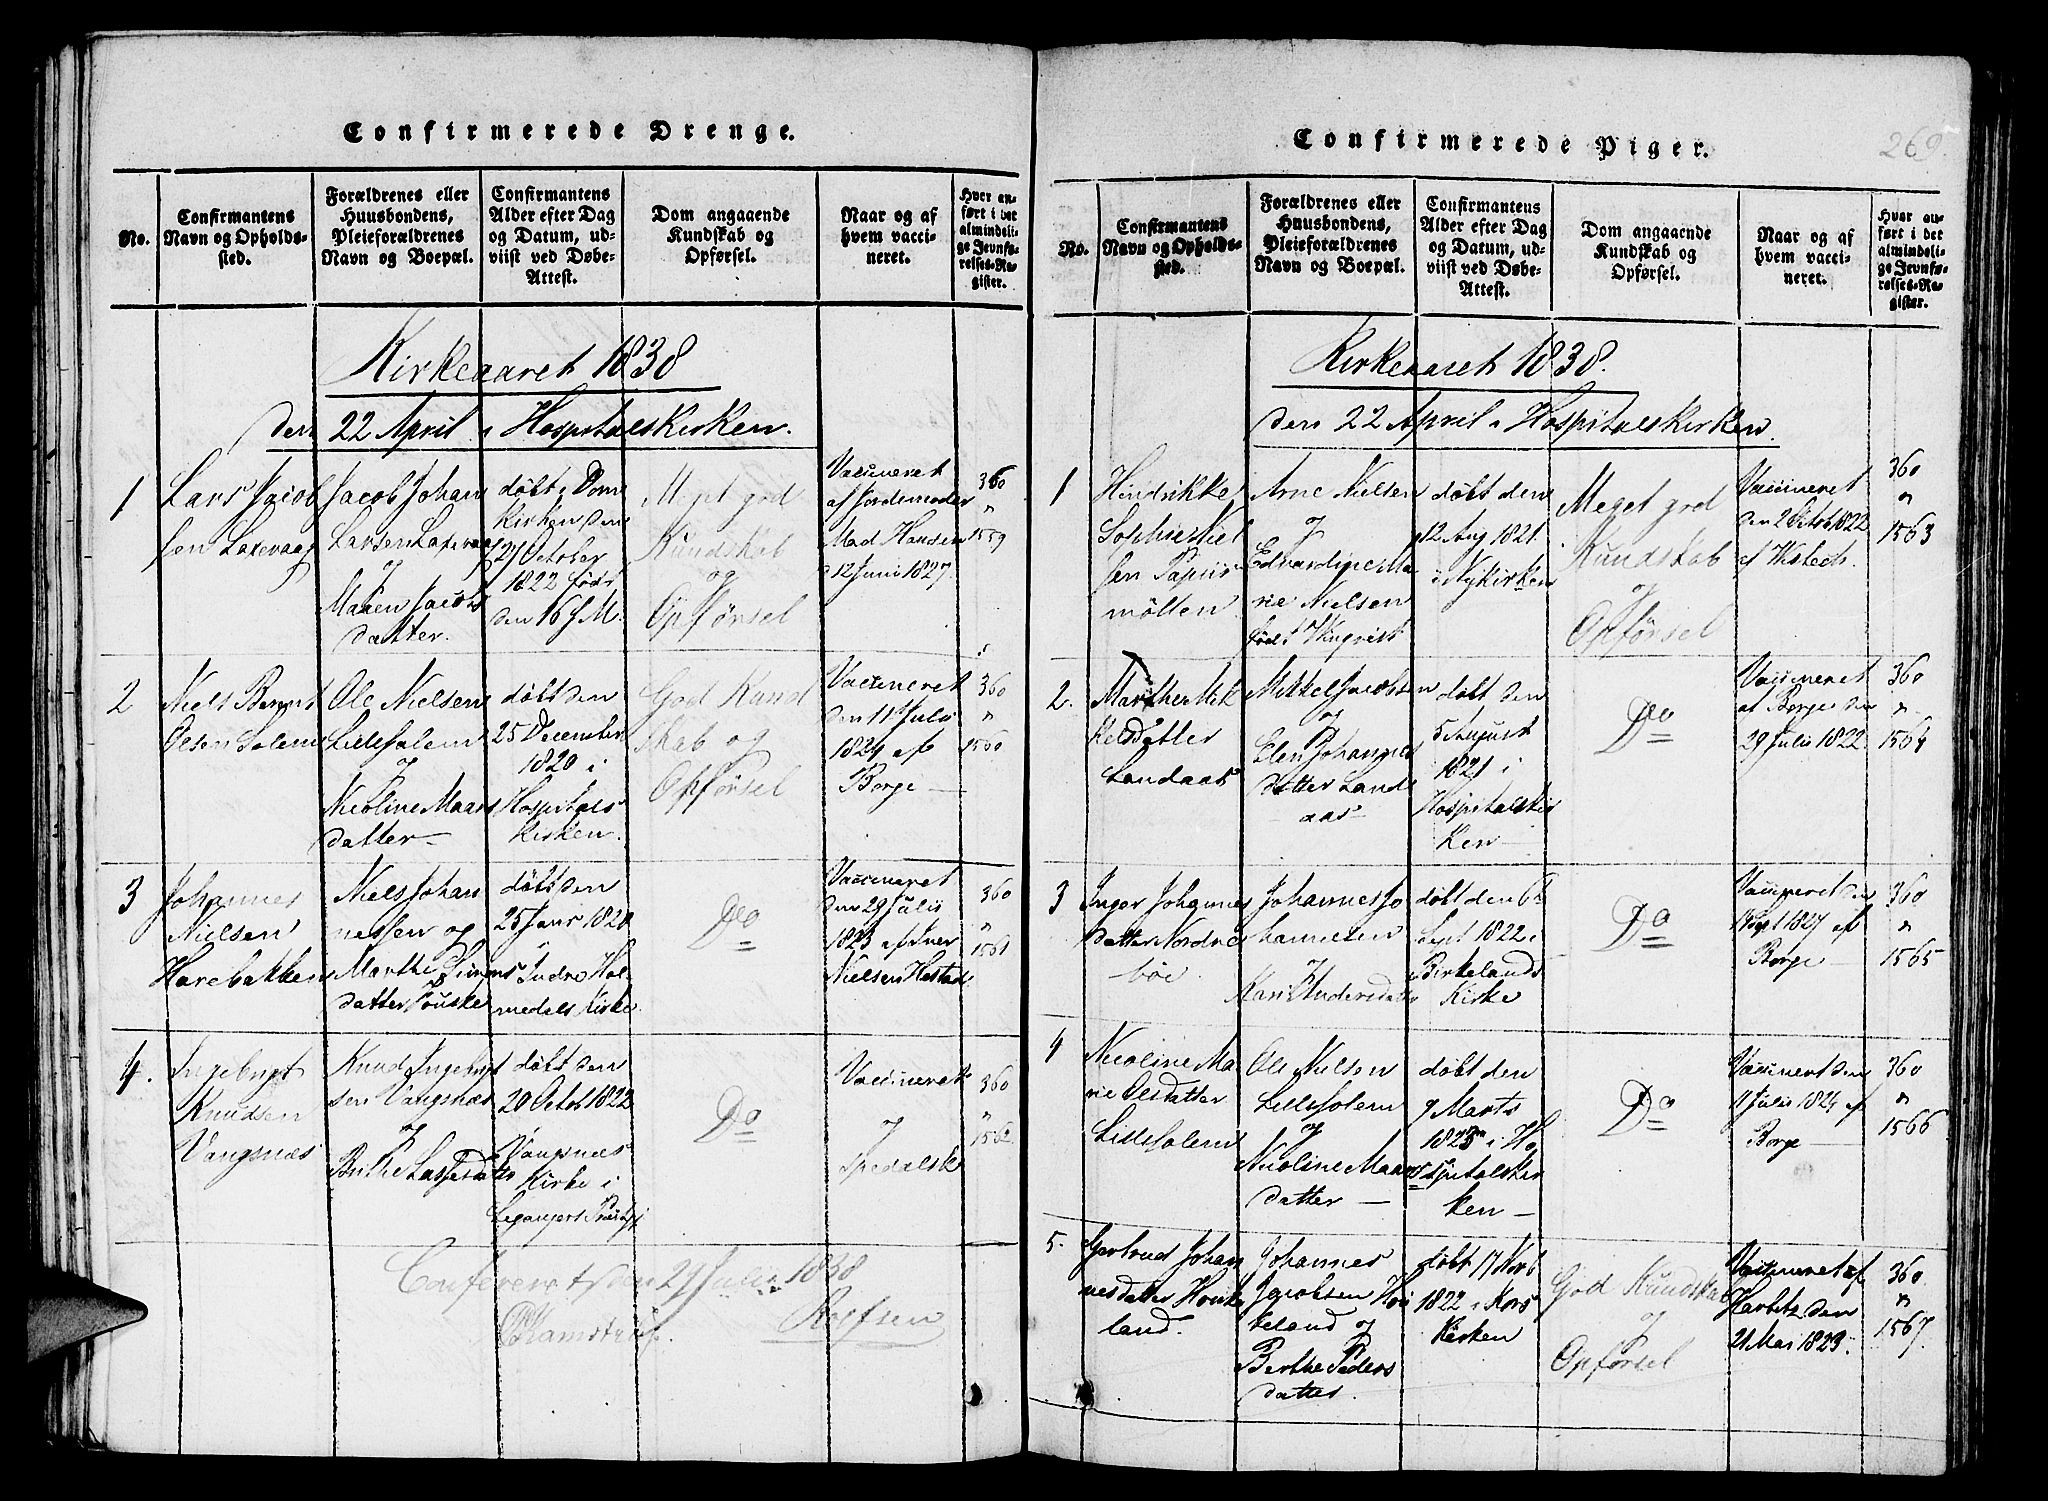 Confirmerede Drenge.
No.
Confirmantens
Navn og Opholds-
sted.
Forældrenes eller
Huusbondens,
Pleieforældrenes
Navn og Boepæl.
Confirmantens
Alder efter Dag
og Datum, ud-
viist ved Døbe-
Attest.
Dom angaaende
Kundskab og
Opførsel.
Naar og af
hvem vacci-
neret.
Hvor an-
ført i det
almindeli-
ge Jevnfø-
relses-Re-
gister.
Kirkeaaret 1838
den 22 April i Hospitalskirken.
1
Lars Jacob
sen Laxevaag
Jacob Johan
Larsen Laxevaag
og
Maren Jacobs
datter.
døbt i Dom
kirken den
27 October
1822 født
den 16 f M.
Meget god
Kundskab
og
Opførsel
Vaccineret
af Jordemoder
Mad Hansen
d 12 Juni 1827.
360
"
1559
2
Niels Bernt
Olsen Solem
Ole Nielsen
Lillesolem
og
Nicoline Maars
datter
døbt den
25 December
1820 i
Hospitals
kirken.
God Kund
skab og
Opførsel
Vaccineret
den 11 Juli
1824 af
Borge
360
"
1560
3
Johannes
Nielsen
Harebakken
Niels Johan
nessen og
Marthe
datter
døbt den
25 Janr 1820
i Indre Hol
medals Kirke
Do
Vaccineret
den 29 Juli
1823 af Iver
Nielsen Hestad
360
"
1561
4.
Ingebrigt
Knudsen
Vangsnæs
Knud Ingebrigt
sen Vangsnæs
og
Brithe Lassesdatter
døbt den
20 Octob 1822
i Vangsnæs
Kirke i
Leganger
Do
Vaccineret
og
spedalsk
360
"
1562
Confereret den 27 Juli 1838
Ramstrup. Rolfsen
Confirmerede Piger.
269.
No.
Confirmantens
Navn og Opholds-
sted.
Forældrenes eller
Huusbondens,
Pleieforældrenes
Navn og Boepæl.
Confirmantens
Alder efter Dag
og Datum, ud-
viist ved Døbe-
Attest.
Dom angaaende
Kundskab og
Opførsel.
Naar og af
hvem vacci-
neret.
Hvor an-
ført i det
almindeli-
ge Jevnfø-
relses-Re-
gister.
Kirkeaaret 1838.
den 22 April i Hospitalskirken.
1
Hindrikke
Sophie Niel
sen Papiir
møllen.
Arne Nielsen
og
Edvardine Ma
rie Nielsen
født
døbt den
12 Aug 1821
i Nykirken
Meget god
Kundskab
og
Opførsel
Vaccineret
den 2 Octob 1822
af
360
"
1563
2.
Marthe Mik
kelsdatter
Landaas
Mikkel Jacobsen
og
Elen Johannes
datter Land
aas
døbt den
5 August
1821 i
Hospitalskir
ken
Do
Vaccineret
af Borge den
29 Juli 1822
360
"
1564
3
Inger Johannes
datter Nordre
bøe
Johannes Jo
hannesen
og
Kari Andersdatter
døbt den 6te
Sept 1822 i
Birkelands
Kirke
Do
Vaccineret den
Sept 1827 af
Borge
360
"
1565
4
Nicoline Ma
rie Olsdatter
Lillesolem
Ole Nielsen
Lillesolem
og
Nicoline Maars
datter
døbt den
9 Marts
1823 i Ho
spitalskir
ken
Do
Vaccineret den
11 Juli 1824 af
Borge
360
"
1566
5.
Gertrud Johan
nesdatter Houke
land.
Johannes
Jacobsen Hou
keland og
Berthe Peders
datter.
døbt 17 Novb
1822 i Kors
Kirken
God Kundskab
og
Opførsel
Vaccineret af
Harbitz den
21 Mai 1823.
360.
"
1567.